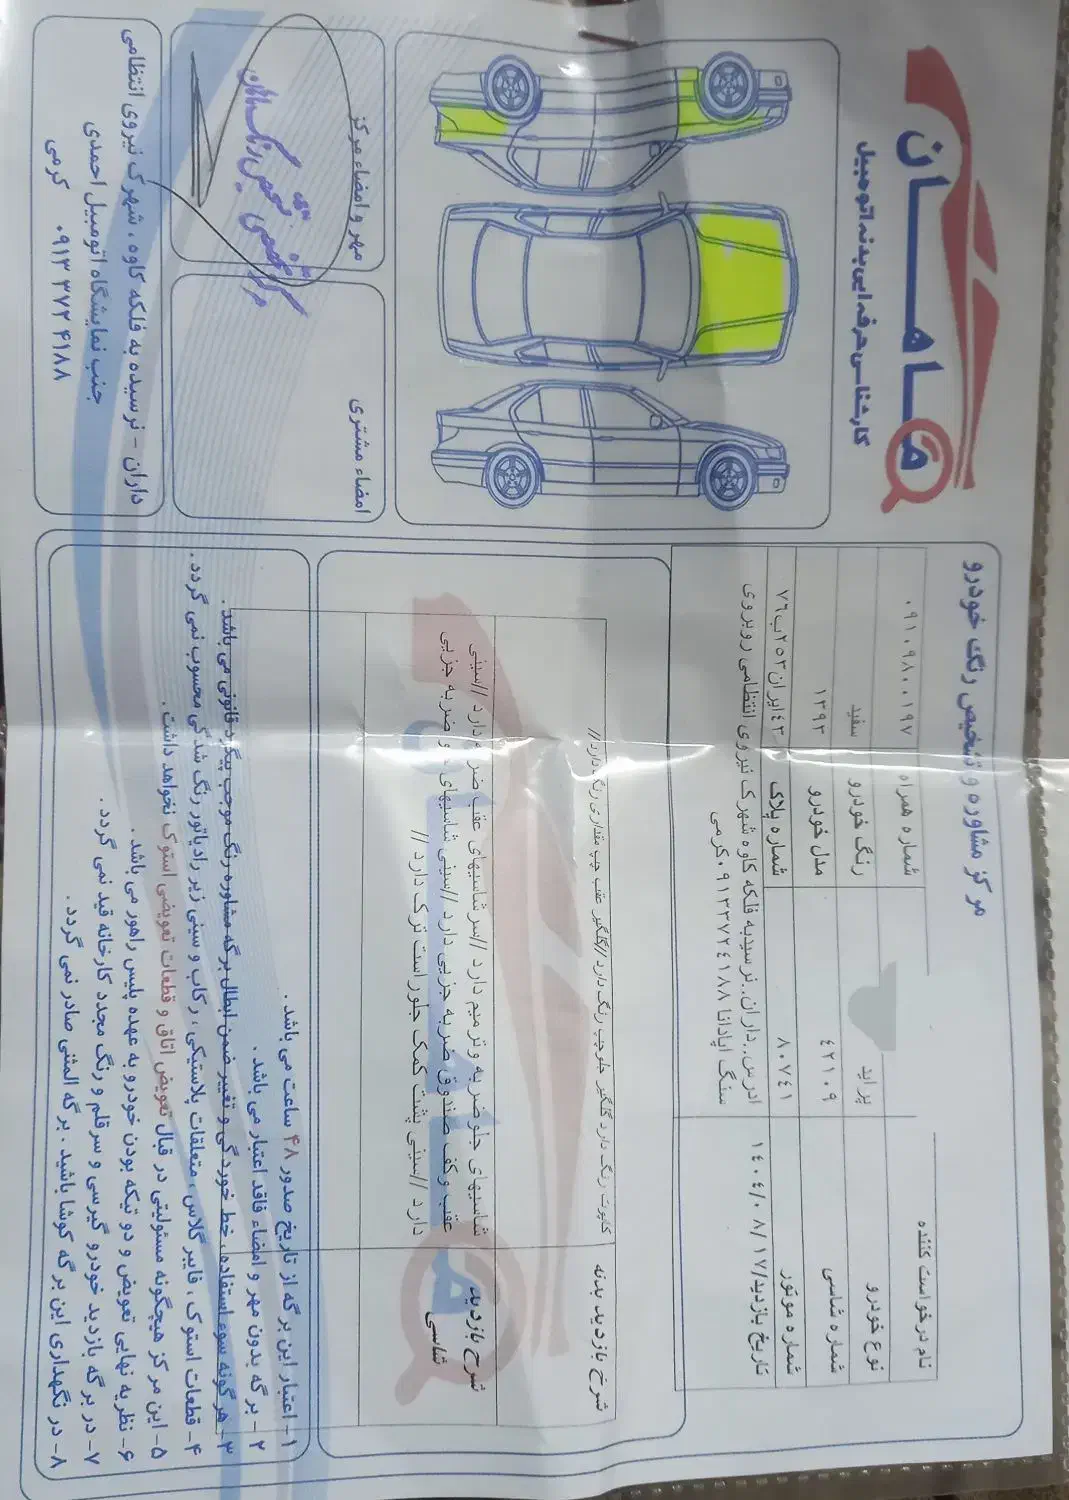 ماهان
کارشناسی حرفه ایی بدنه اتومبیل
مرکز مشاوره و تشخیص رنگ خودرو
نام درخواست کننده
شماره همراه ۰۹۱۰۹۸۰۰۱۹۷
نوع خودرو پراید رنگ خودرو سفید
شماره شاسی ۴۲۱۰۹ مدل خودرو ۱۳۹۲
شماره موتور ۸۰۷۴۱ شماره پلاک ۴۳ایران۲۵۳ب۷۶
تاریخ بازدید/۱۴۰۴/۰۸/۱۷ ادرس..داران..نرسیدبه فلکه کاوه شهرک نیروی انتظامی روبروی
سنگ اپادانا ۰۹۱۳۳۷۲۴۱۸۸کرمی
شرح بازدید بدنه کاپوت رنگ دارد گلگیر جلوچپ رنگ دارد//گلگیر عقب چپ مقداری رنگ دارد//
شرح بازدید شاسی شاسیهای جلوضربه وترمیم دارد //سر شاسیهای عقب ضربه دارد //سینی
عقب وکف صندوق ضربه جزیی دارد //سینی شاسیهای و ضربه جزیی
دارد //سینی پشت کمک جلوراست ترک دارد //
۱- اعتبار این برگه از تاریخ صدور ۴۸ ساعت می باشد .
۲ - برگه بدون مهر و امضاء فاقد اعتبار می باشد .
۳- هرگونه سوء استفاده، خط خوردگی و تغییر ضمن ابطال برگه مشاوره رنگ موجب پیگرد قانونی می باشد .
۴- قطعات استوک ، فایبر گلاس ، متعلقات پلاستیکی ، رکاب و سینی زیر رادیاتور رنگ شدگی محسوب نمی گردد .
۵- این مرکز هیچگونه مسئولیتی در قبال تعویض اتاق و قطعات تعویضی استوک نخواهد داشت .
۶- نظریه نهایی تعویض و دو تیکه بودن خودرو به عهده پلیس راهور می باشد .
۷- در برگه بازدید خودرو گیرسی و سرقلم و رنگ مجدد کارخانه قید نمی گردد .
۸- در نگهداری این برگه کوشا باشید . برگه المثنی صادر نمی گردد .
مهر و امضاء مرکز
مرکز تخصصی تشخیص رنگ ماهان
امضاء مشتری
داران - نرسیده به فلکه کاوه ، شهرک نیروی انتظامی
جنب نمایشگاه اتومبیل احمدی
۰۹۱۳ ۳۷۲ ۴۱۸۸ کرمی